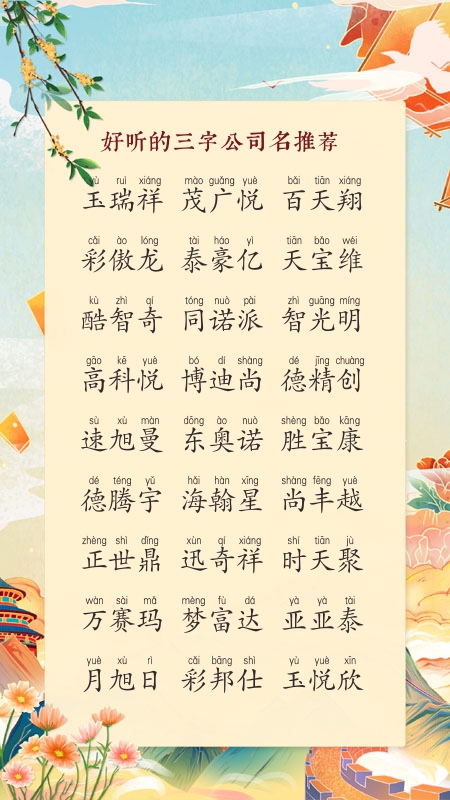 好听的三字公司名推荐
yù ruì xiáng mào guǎng yuè bǎi tiān xiáng
玉瑞祥 茂广悦 百天翔
cǎi ào lóng tài háo yì tiān bǎo wéi
彩傲龙 泰豪亿 天宝维
kù zhì qí tóng nuò pài zhì guāng míng
酷智奇 同诺派 智光明
gāo kē yuè bó dí shàng dé jīng chuàng
高科悦 博迪尚 德精创
sù xù màn dōng ào nuò shèng bǎo kāng
速旭曼 东奥诺 胜宝康
dé téng yǔ hǎi hàn xīng shàng fēng yuè
德腾宇 海翰星 尚丰越
zhèng shì dǐng xùn qí xiáng shí tiān jù
正世鼎 迅奇祥 时天聚
wàn sài mǎ mèng fù dá yà yà tài
万赛玛 梦富达 亚亚泰
yuè xù rì cǎi bāng shì yù yuè xīn
月旭日 彩邦仕 玉悦欣